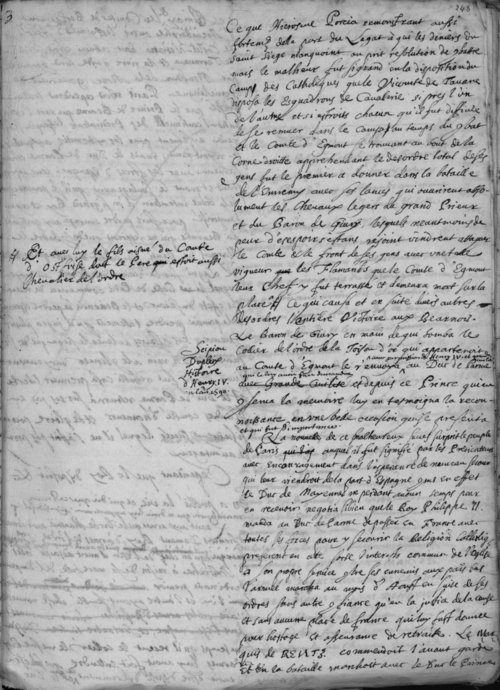 3
248
Ce que Hierosme Porcia remonstrant aussi
obtemp de la part du Legat à qui les deniers du
Saint Siege manquoient on prit resolution de
mais le malheur fut si grand en la disposition du
Camp des Catholiques que le Viconte de Tavane
disposa les Esquadrons de Cavalerie si pres l'un
de l'autre et si estroits chacun qu'il fut difficile
de se remuer dans le Camp au temps du
et le Comte d'Egmont se trouvant au bout de la
Corne droitte apprehendant le desordre total de ses
gens fut le premier a donner dans la bataille
de l'Ennemy avec ses lances qui ouvrirent abso-
lument les Chevaux legers du grand Prieur
et du Baron de Giury, lesquels neantmoins de
peur d'esespoir
le Comte et le front de ses gens avec une telle
vigueur que les Flamands que le Comte d'Egmont
leur Chef y fut terrassé et demeura mort sur la
place # Ce qui causa en suite divers autres
desordres l'entière Victoire aux Bearnois.
Le Baron de Giury en main de qui tomba le
Colier de l'ordre de la Toison d'or qui appartenoit
au Comte d'Egmont le renvoya au Duc de Parme
et depuis ce Prince qui en
la memoire luy en tesmoigna la recon-
noissance en une belle occasion qui se presenta
et qui fut d'importance
La nouvelle de ce malheureux succes surprit le peuple
de Paris auquel il fut signifié par les Predicateurs
avec encouragement dans l'esperance de nouveau secours
qui leur viendroit de la part d'Espagne que en effet
le Duc de Mayenne ne perdant aucun temps pour
en recevoir negotia si bien que le Roy Philippe II.
manda au Duc de Parme de passer en France avec
toutes ses forces pour y secourir la Religion Catholiq
preferant en cette sorte l'interest commun de l'Eglise
a son propre service contre ses ennemis aux païs bas
l'armée marcha au mois d'Aoust en suite de ses
ordres sans autre confiance qu'en la justice de la cause
et sans aucune place de France qui luy fust donnée
pour hostage et asseurance de retraitte. Le Mar
quis de RENTI commendoit l'avant garde
Et en la bataille marchoit avec le Duc le Prince
# Et avec luy le fils aisné du Comte
d'Ost frise dont le Pere qui estoit aussi
Chevalier de l'ordre
Scipion
Dupleix
Histoire
d'Henry IV.